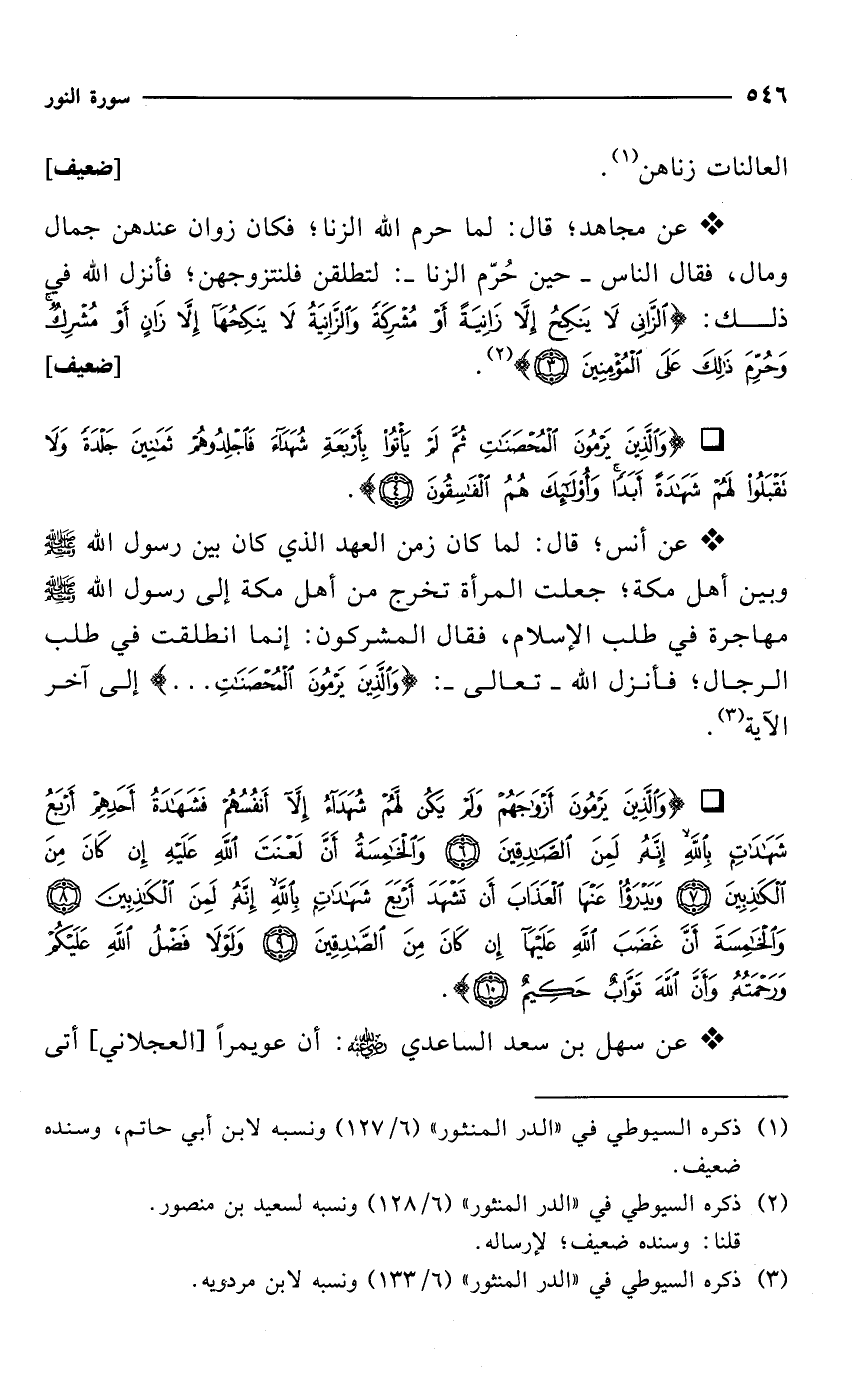 ٥٤٦ سورة النور
العالنات زناهن(١). [ضعيف]
❖ عن مجاهد؛ قال: لما حرم الله الزنا؛ فكان زوان عندهن جمال
ومال، فقال الناس ـ حين حُرّم الزنا ـ: لتطلقن فلنتزوجهن؛ فأنزل الله في
ذلـــك: ﴿ٱلزَّانِى لَا يَنكِحُ إِلَّا زَانِيَةً أَوْ مُشْرِكَةً وَٱلزَّانِيَةُ لَا يَنكِحُهَآ إِلَّا زَانٍ أَوْ مُشْرِكٌۚ
وَحُرِّمَ ذَٰلِكَ عَلَى ٱلْمُؤْمِنِينَ ٣﴾(٢). [ضعيف]
❑ ﴿وَٱلَّذِينَ يَرْمُونَ ٱلْمُحْصَنَٰتِ ثُمَّ لَمْ يَأْتُوا۟ بِأَرْبَعَةِ شُهَدَآءَ فَٱجْلِدُوهُمْ ثَمَٰنِينَ جَلْدَةً وَلَا
تَقْبَلُوا۟ لَهُمْ شَهَٰدَةً أَبَدًاۚ وَأُو۟لَٰٓئِكَ هُمُ ٱلْفَٰسِقُونَ ٤﴾.
❖ عن أنس؛ قال: لما كان زمن العهد الذي كان بين رسول الله ﷺ
وبين أهل مكة؛ جعلت المرأة تخرج من أهل مكة إلى رسول الله ﷺ
مهاجرة في طلب الإسلام، فقال المشركون: إنما انطلقت في طلب
الرجال؛ فأنزل الله ـ تعالى ـ: ﴿وَٱلَّذِينَ يَرْمُونَ ٱلْمُحْصَنَٰتِ...﴾ إلى آخر
الآية(٣).
❑ ﴿وَٱلَّذِينَ يَرْمُونَ أَزْوَٰجَهُمْ وَلَمْ يَكُن لَّهُمْ شُهَدَآءُ إِلَّآ أَنفُسُهُمْ فَشَهَٰدَةُ أَحَدِهِمْ أَرْبَعُ
شَهَٰدَٰتٍۭ بِٱللَّهِۙ إِنَّهُۥ لَمِنَ ٱلصَّٰدِقِينَ ٦ وَٱلْخَٰمِسَةُ أَنَّ لَعْنَتَ ٱللَّهِ عَلَيْهِ إِن كَانَ مِنَ
ٱلْكَٰذِبِينَ ٧ وَيَدْرَؤُا۟ عَنْهَا ٱلْعَذَابَ أَن تَشْهَدَ أَرْبَعَ شَهَٰدَٰتٍۭ بِٱللَّهِۙ إِنَّهُۥ لَمِنَ ٱلْكَٰذِبِينَ ٨
وَٱلْخَٰمِسَةَ أَنَّ غَضَبَ ٱللَّهِ عَلَيْهَآ إِن كَانَ مِنَ ٱلصَّٰدِقِينَ ٩ وَلَوْلَا فَضْلُ ٱللَّهِ عَلَيْكُمْ
وَرَحْمَتُهُۥ وَأَنَّ ٱللَّهَ تَوَّابٌ حَكِيمٌ ١٠﴾.
❖ عن سهل بن سعد الساعدي رضي الله عنه: أن عويمراً [العجلاني] أتى
(١) ذكره السيوطي في «الدر المنثور» (٦/ ١٢٧) ونسبه لابن أبي حاتم، وسنده
ضعيف.
(٢) ذكره السيوطي في «الدر المنثور» (٦/ ١٢٨) ونسبه لسعيد بن منصور.
قلنا: وسنده ضعيف؛ لإرساله.
(٣) ذكره السيوطي في «الدر المنثور» (٦/ ١٣٣) ونسبه لابن مردويه.